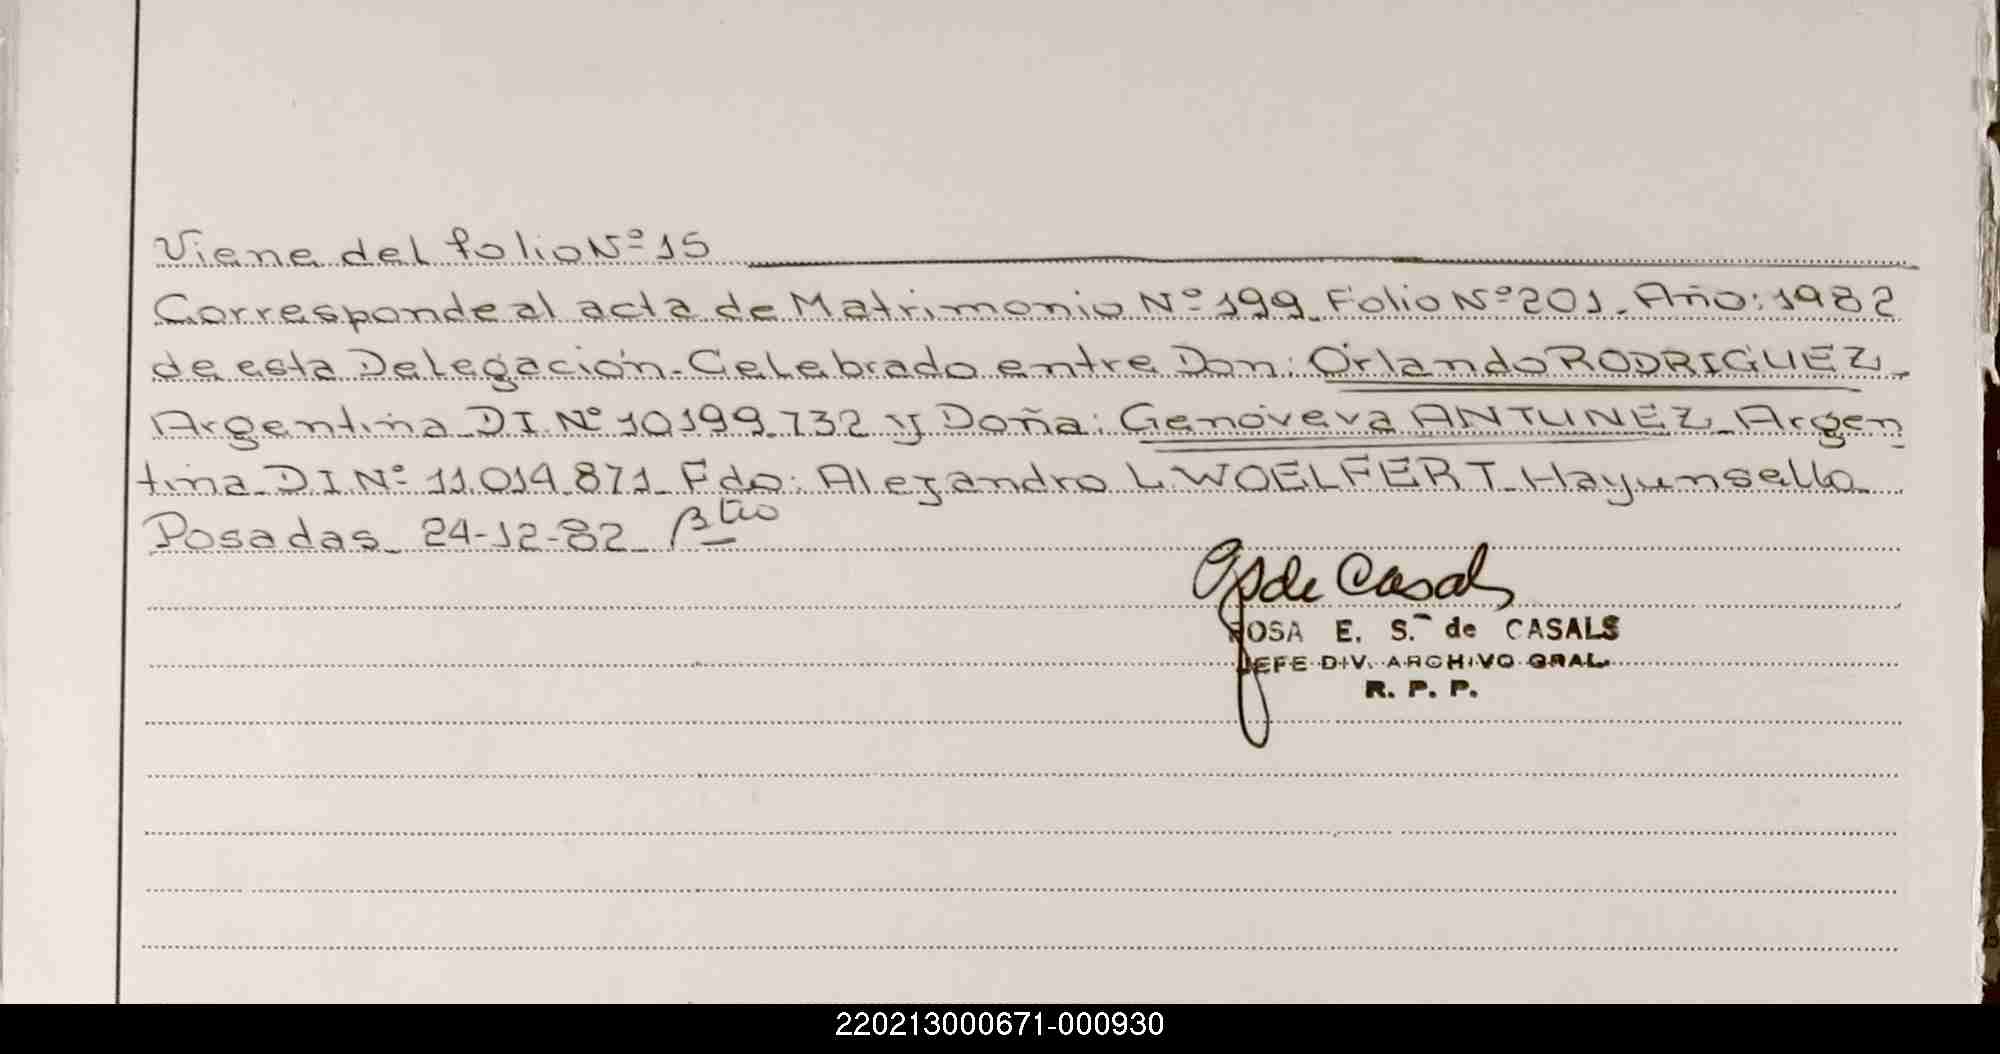 Viene del folio Nº 15
Corresponde al acta de Matrimonio Nº 199. Folio Nº 201. Año: 1982
de esta Delegación. Celebrado entre Don: Orlando RODRIGUEZ.
Argentina DI. Nº 10.199.732 y Doña: Genoveva ANTUNEZ. Argen
tina. D.I. Nº 11.014.871. Fdo: Alejandro L. WOELFERT. Hay un sello
Posadas. 24-12-82.
de Casals
ROSA E. S. de CASALS
JEFE DIV. ARCHIVO GRAL.
R. P. P.
220213000671-000930